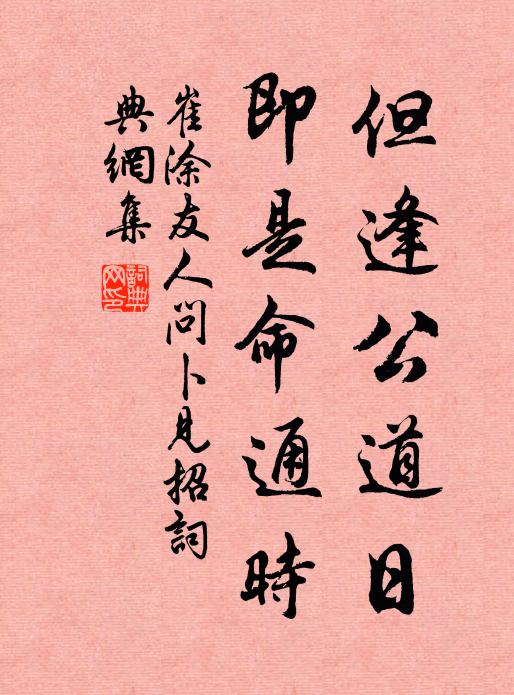 但逢公道日
即是命通時
崔涂友人問卜見招詞
典網集
詞典網印